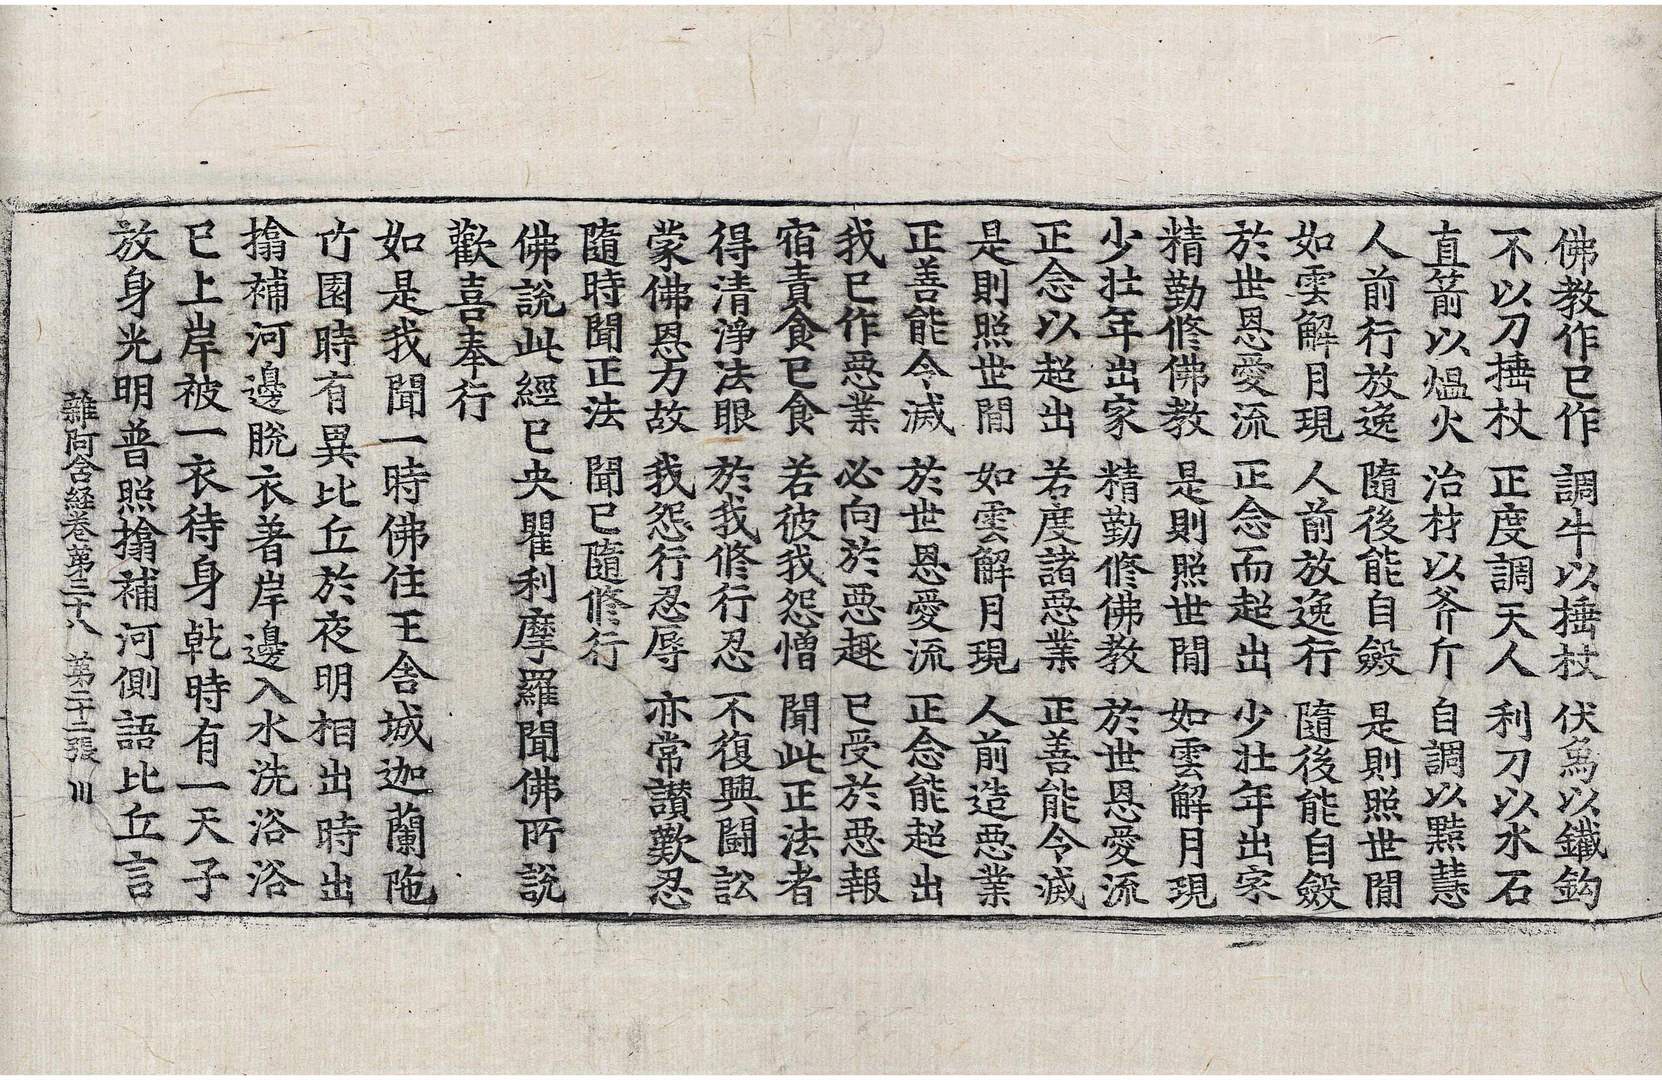 佛教作已作 調牛以捶杖 伏象以鐵鉤
不以刀捶杖 正度調天人 利刀以水石
直箭以熅火 治材以斧斤 自調以黠慧
人前行放逸 隨後能自斂 是則照世閒
如雲解月現 人前放逸行 隨後能自斂
於世恩愛流 正念而超出 少壯年出家
精勤修佛教 是則照世閒 如雲解月現
少壯年出家 精勤修佛教 於世恩愛流
正念以超出 若度諸惡業 正善能令滅
是則照世閒 如雲解月現 人前造惡業
正善能令滅 於世恩愛流 正念能超出
我已作惡業 必向於惡趣 已受於惡報
宿責食已食 若彼我怨憎 聞此正法者
得清淨法眼 於我修行忍 不復興鬪訟
蒙佛恩力故 我怨行忍辱 亦常讃歎忍
隨時聞正法 聞已隨修行
佛說此經已央瞿利摩羅聞佛所說
歡喜奉行
如是我聞一時佛住王舍城迦蘭陁
竹園時有異比丘於夜明相出時出
搚補河邊脫衣著岸邊入水洗浴浴
已上岸被一衣待身乾時有一天子
放身光明普照搚補河側語比丘言
雜阿含経卷第三十八 第二十二張